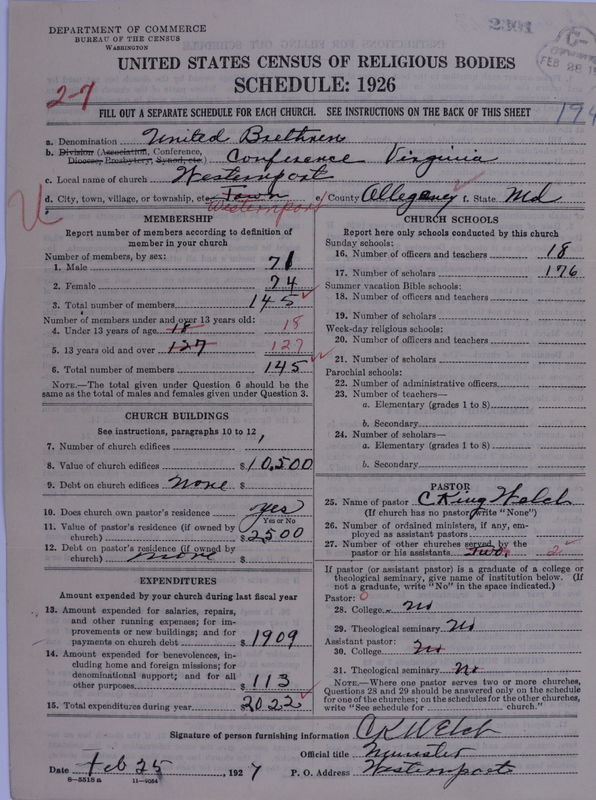 DEPARTMENT OF COMMERCE
BUREAU OF THE CENSUS
WASHINGTON
FEB 28
UNITED STATES CENSUS OF RELIGIOUS BODIES
SCHEDULE: 1926
2-7
FILL OUT A SEPARATE SCHEDULE FOR EACH CHURCH. SEE INSTRUCTIONS ON THE BACK OF THIS SHEET
194
a. Denomination United Brethren
b. Division (Association, Conference, Diocese, Presbytery, Synod, etc.) Conference Virginia
c. Local name of church Westernport
d. City, town, village, or township, etc. Town Westernport e. County Allegany f. State Md
MEMBERSHIP
Report number of members according to definition of
member in your church
Number of members, by sex:
1. Male 71
2. Female 74
3. Total number of members 145
Number of members under and over 13 years old:
4. Under 13 years of age 18 18
5. 13 years old and over 127 127
6. Total number of members 145
NOTE.—The total given under Question 6 should be
the same as the total of males and females given under Question 3.
CHURCH BUILDINGS
See instructions, paragraphs 10 to 12
7. Number of church edifices 1
8. Value of church edifices $10,500
9. Debt on church edifices none $
10. Does church own pastor's residence yes
Yes or No
11. Value of pastor's residence (if owned by
church) $2500
12. Debt on pastor's residence (if owned by
church) none $
EXPENDITURES
Amount expended by your church during last fiscal year
13. Amount expended for salaries, repairs,
and other running expenses; for im-
provements or new buildings; and for
payments on church debt $1909
14. Amount expended for benevolences, in-
cluding home and foreign missions; for
denominational support; and for all
other purposes $113
15. Total expenditures during year $2022
CHURCH SCHOOLS
Report here only schools conducted by this church
Sunday schools:
16. Number of officers and teachers 18
17. Number of scholars 176
Summer vacation Bible schools:
18. Number of officers and teachers
19. Number of scholars
Week-day religious schools:
20. Number of officers and teachers
21. Number of scholars
Parochial schools:
22. Number of administrative officers
23. Number of teachers—
a. Elementary (grades 1 to 8)
b. Secondary
24. Number of scholars—
a. Elementary (grades 1 to 8)
b. Secondary
PASTOR
25. Name of pastor C King Welch
(If church has no pastor write "None")
26. Number of ordained ministers, if any, em-
ployed as assistant pastors
27. Number of other churches served by the
pastor or his assistants Two 2
If pastor (or assistant pastor) is a graduate of a college or
theological seminary, give name of institution below. (If
not a graduate, write "No" in the space indicated.)
Pastor: 0
28. College No
29. Theological seminary No
Assistant pastor:
30. College No
31. Theological seminary No
NOTE.—Where one pastor serves two or more churches,
Questions 28 and 29 should be answered only on the schedule
for one of the churches; on the schedules for the other churches,
write "See schedule for church."
Signature of person furnishing information C K Welch
Official title Minister
Date Feb 25, 1927 P. O. Address Westernport
8—5518a 11—9054